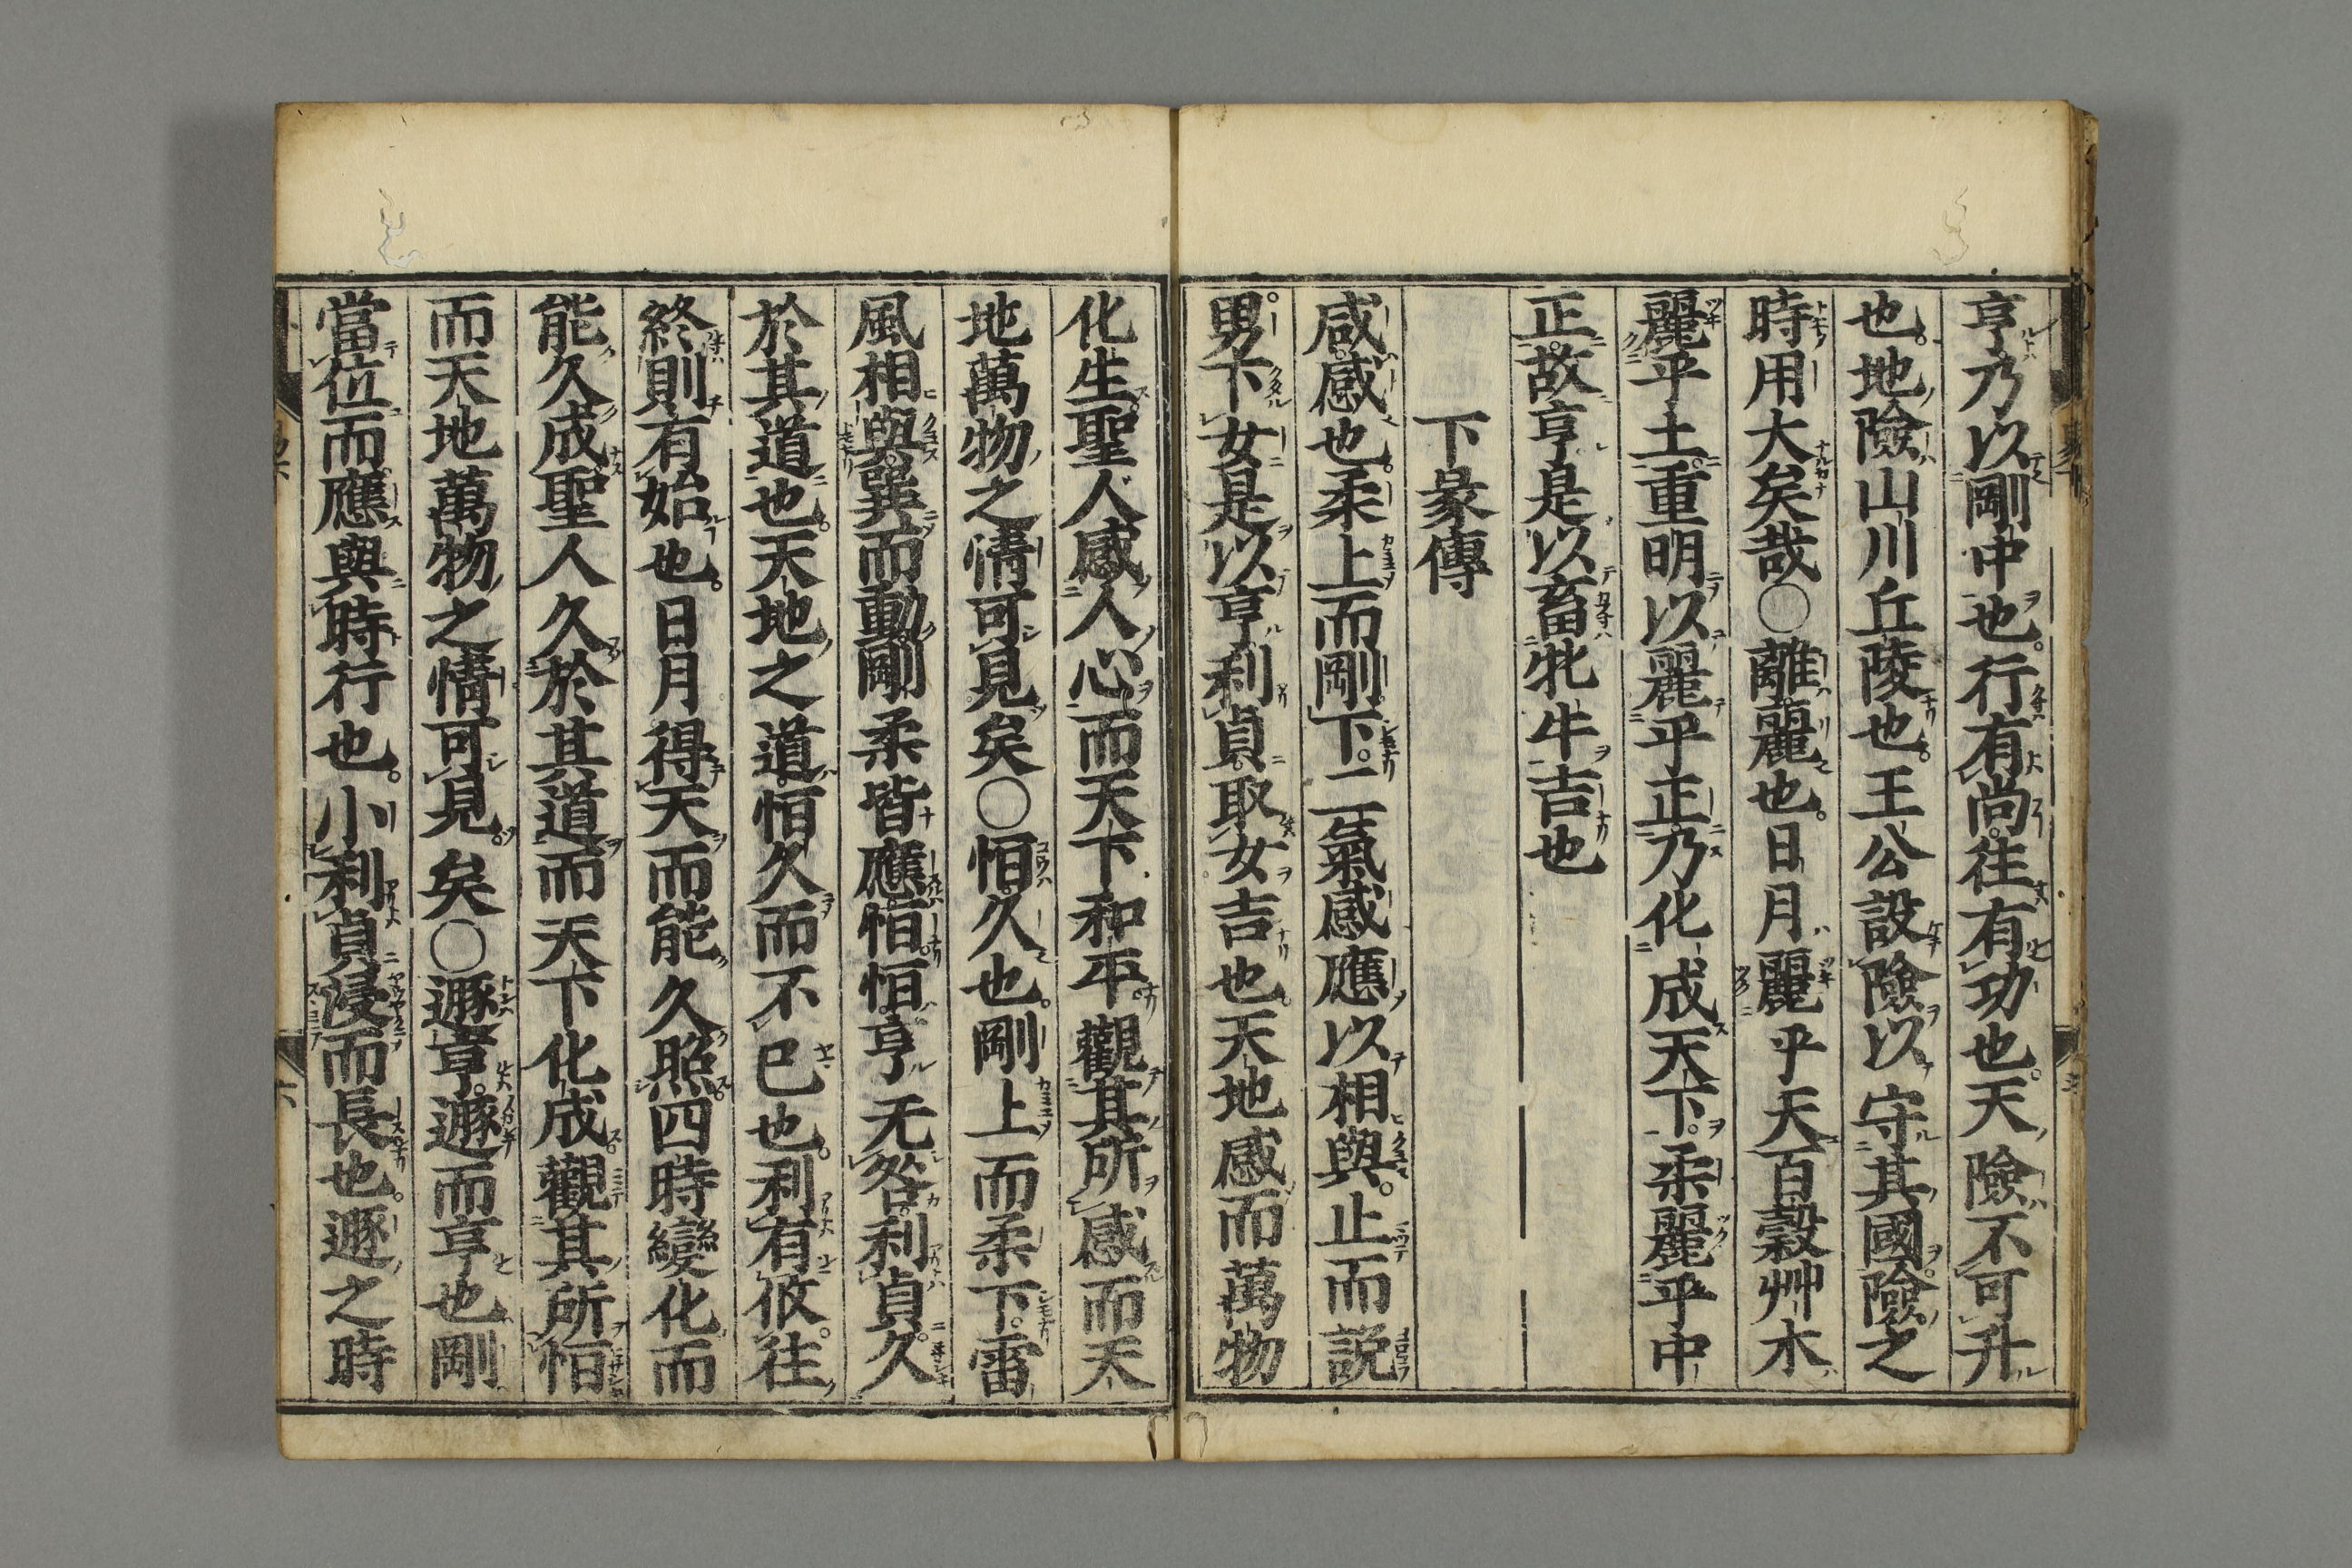 亨。乃以剛中也。行有尚。往有功也。天險不可升
也。地險山川丘陵也。王公設險以守其國。險之
時用大矣哉○離麗也。日月麗乎天。百穀艸木
麗乎土。重明以麗乎正。乃化成天下。柔麗乎中
正。故亨。是以畜牝牛吉也
下彖傳
咸。感也。柔上而剛下。二氣感應以相與。止而説
男下女。是以亨利貞。取女吉也。天地感而萬物
化生。聖人感人心而天下和平。觀其所感而天
地萬物之情可見矣○恒。久也。剛上而柔下。雷
風相與。巽而動。剛柔皆應。恒。恒亨无咎。利貞。久
於其道也。天地之道。恒久而不已也。利有攸往。
終則有始也。日月得天而能久照。四時變化而
能久成。聖人久於其道而天下化成。觀其所恒
而天地萬物之情可見矣○遯亨。遯而亨也。剛
當位而應。與時行也。小利貞。浸而長也。遯之時